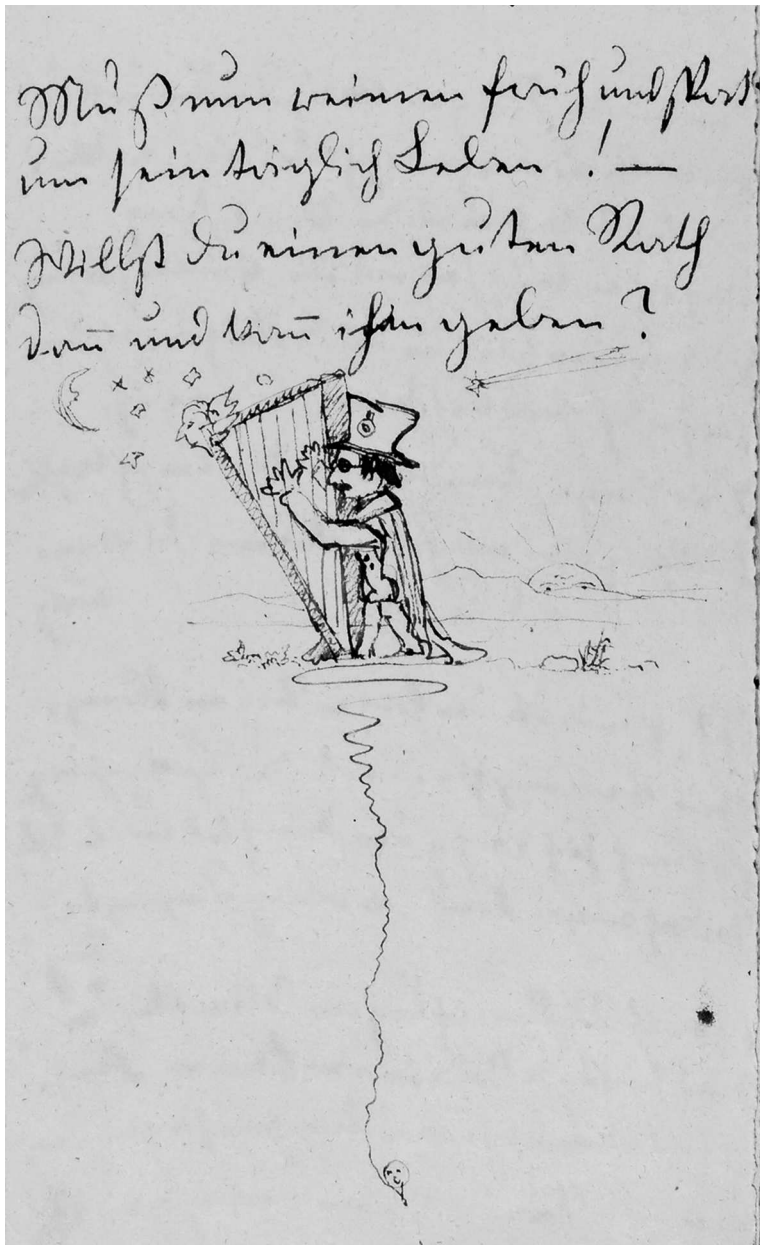 Muß nun reimen früh und spat
um sein täglich Leben! —
Willst Du einen guten Rath
dan̄ und wan̄ ihm geben?